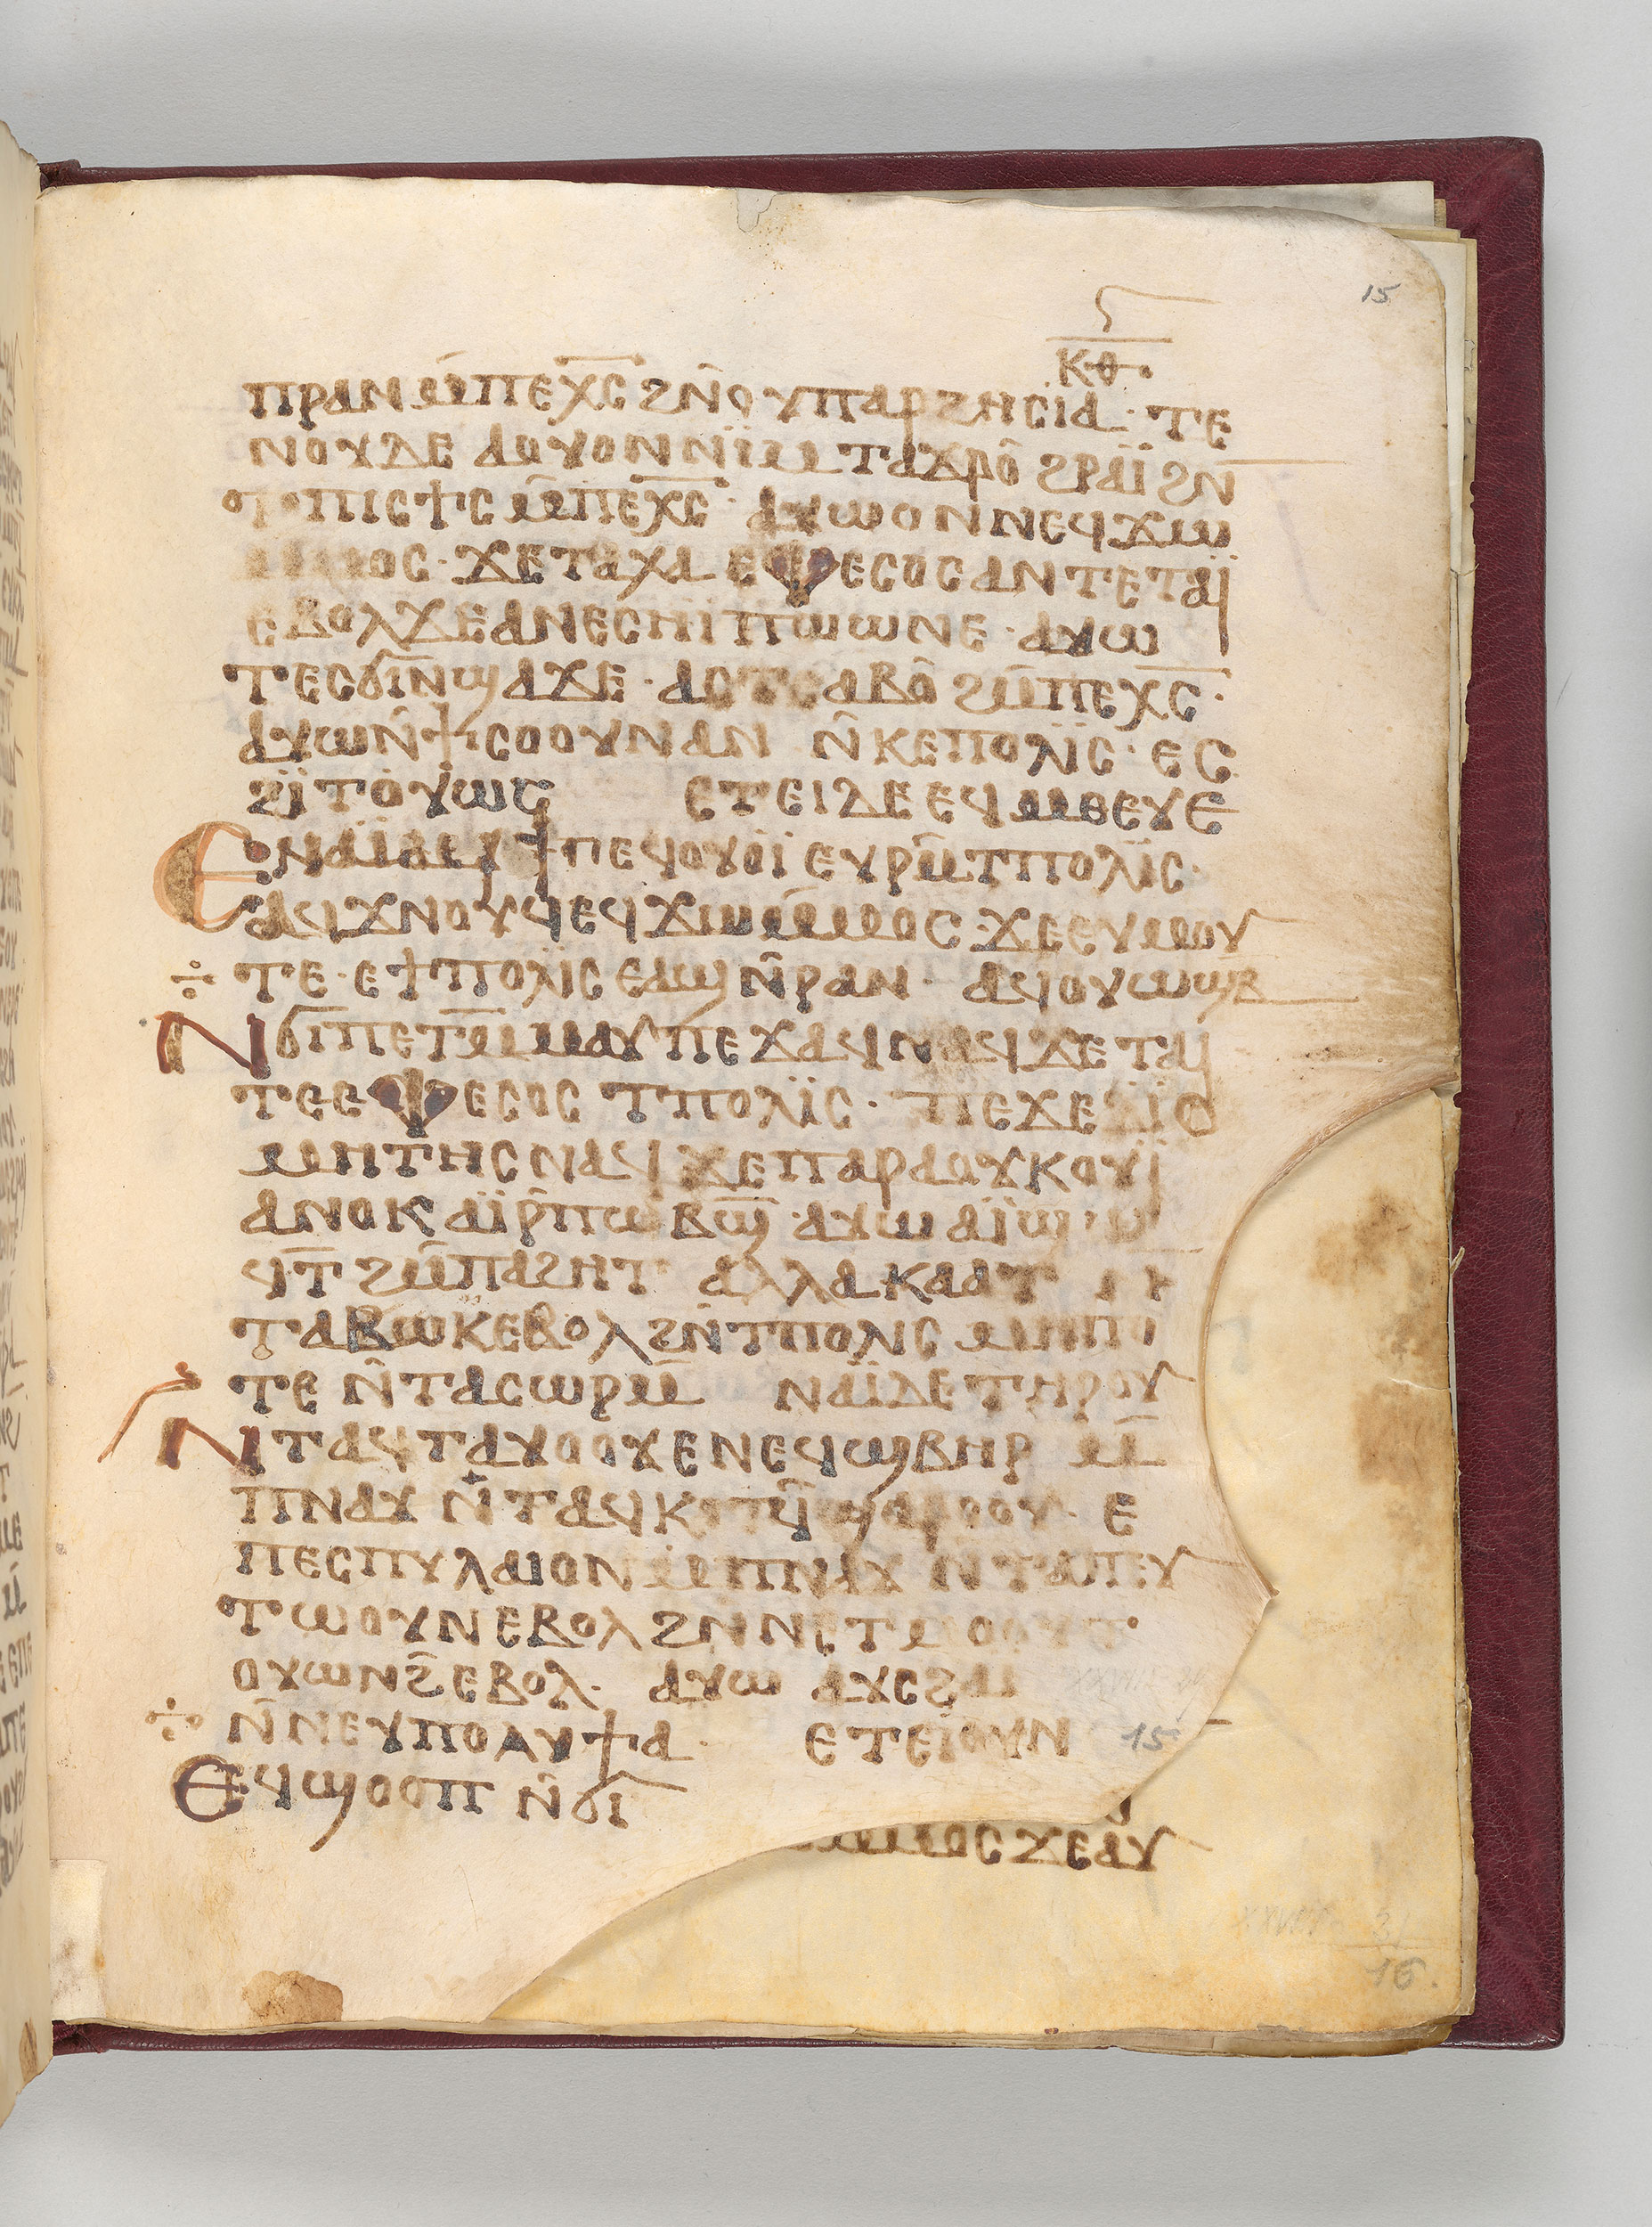 15
ⲕⲑ
ⲡⲣⲁⲛ ⲙ̄ⲡⲉⲭ̄ⲥ̄ ϩⲛ̄ⲟⲩⲡⲁⲣϩⲏⲥⲓⲁ · ⲧⲉ
ⲛⲟⲩⲇⲉ ⲁⲟⲩⲟⲛ ⲛⲓ̈ⲙ ⲧⲁϫⲣⲟ̄ ϩⲣⲁⲓ̈ ϩⲛ
ⲧⲡⲓⲥϯⲥ ⲙ̄ⲡⲉⲭ̄ⲥ̄ · ⲁⲩⲱ ⲟⲛ ⲛⲉϥϫⲱ
ⲙⲙⲟⲥ · ϫⲉⲧⲁⲭⲁ ⲉⲫⲉⲥⲟⲥ ⲁⲛ ⲧⲉ ⲧⲁⲓ̈
ⲉⲃⲟⲗ ϫⲉ ⲁⲛⲉⲥⲏⲓ̈ ⲡⲱⲱⲛⲉ · ⲁⲩⲱ
ⲧⲉⲥϭⲓⲛ̄ϣⲁϫⲉ · ⲁⲥⲧⲥⲁⲃⲟ̄ ϩⲙ̄ⲡⲉⲭ̄ⲥ̄ ·
ⲁⲩⲱ ⲛ̄ϯⲥⲟⲟⲩⲛ ⲁⲛ ⲛ̄ⲕⲉⲡⲟⲗⲓ̈ⲥ · ⲉⲥ
ϩⲓ̈ⲧⲟⲩⲱⲥ ⲉⲧⲉⲓ ⲇⲉ ⲉϥⲙⲉⲉⲩⲉ
ⲉⲛⲁⲓ̈ ⲁϥϯⲡⲉϥⲟⲩⲟⲓ̈ ⲉⲩⲣⲙ̄ⲧⲡⲟⲗⲓ̈ⲥ ·
ⲁϥϫⲛⲟⲩϥ ⲉϥϫⲱ ⲙ̄ⲙⲟⲥ · ϫⲉ ⲉⲩⲙⲟⲩ
ⲧⲉ · ⲉϯⲡⲟⲗⲓⲥ ⲉⲁϣ ⲛ̄ⲣⲁⲛ · ⲁϥⲟⲩⲱϣⲃ
ⲛϭⲓⲡⲉⲧⲙ̄ⲙⲁⲩ ⲡⲉϫⲁϥ ⲛⲁϥ ϫⲉ ⲧⲁⲓ̈
ⲧⲉ ⲉⲫⲉⲥⲟⲥ ⲧⲡⲟⲗⲓ̈ⲥ · ⲡⲉϫⲉ ⲇⲓ̈ⲟ
ⲙⲏⲧⲏⲥ ⲛⲁϥ ϫⲉ ⲡⲁⲣⲁⲟⲩⲕⲟⲩⲓ̈
ⲁⲛⲟⲕ ⲁⲓ̈ⲣ̄ⲡⲱⲃϣ̄ · ⲁⲩⲱ ⲁⲓ̈ϣⲱ
ϥⲧ̄ ϩⲙ̄ⲡⲁϩⲏⲧ ⲁⲗⲗⲁ ⲕⲁⲁⲧ
ⲧⲁⲃⲱⲕ ⲉⲃⲟⲗ ϩⲛ̄ⲧⲡⲟⲗⲓⲥ ⲙⲏⲡⲟ
ⲧⲉ ⲛ̄ⲧⲁⲥⲱⲣⲙ̄ ⲛⲁⲓ̈ ⲇⲉ ⲧⲏⲣⲟⲩ
ⲛⲧⲁϥⲧⲁⲩⲟⲟⲩ ⲉⲛⲉϥϣⲃⲏⲣ ⲙ̄
ⲡⲛⲁⲩ ⲛ̄ⲧⲁϥⲕⲟⲧϥ̄ ϣⲁⲣⲟⲟⲩ · ⲉ
ⲡⲉⲥⲡⲩⲗⲁⲓⲟⲛ ⲙ̄ⲡⲛⲁⲩ ⲛⲧⲁⲡⲉⲩ
ⲧⲱⲟⲩⲛ ⲉⲃⲟⲗ ϩⲛ ⲛⲉⲧⲙⲟⲟⲩⲧ
ⲟⲩⲱⲛϩ̄ ⲉⲃⲟⲗ · ⲁⲩⲱ ⲁⲩⲥϩⲁⲓ
ⲛ̄ⲛⲉⲩⲡⲟⲗⲩϯⲁ · ⲉⲧⲉⲓ̈ ⲟⲩⲛ
ⲉϥϣⲟⲟⲡ ⲛ̄ϭⲓ
15
ⲙⲙⲟⲥ ϫⲉ ⲁⲩ
16.